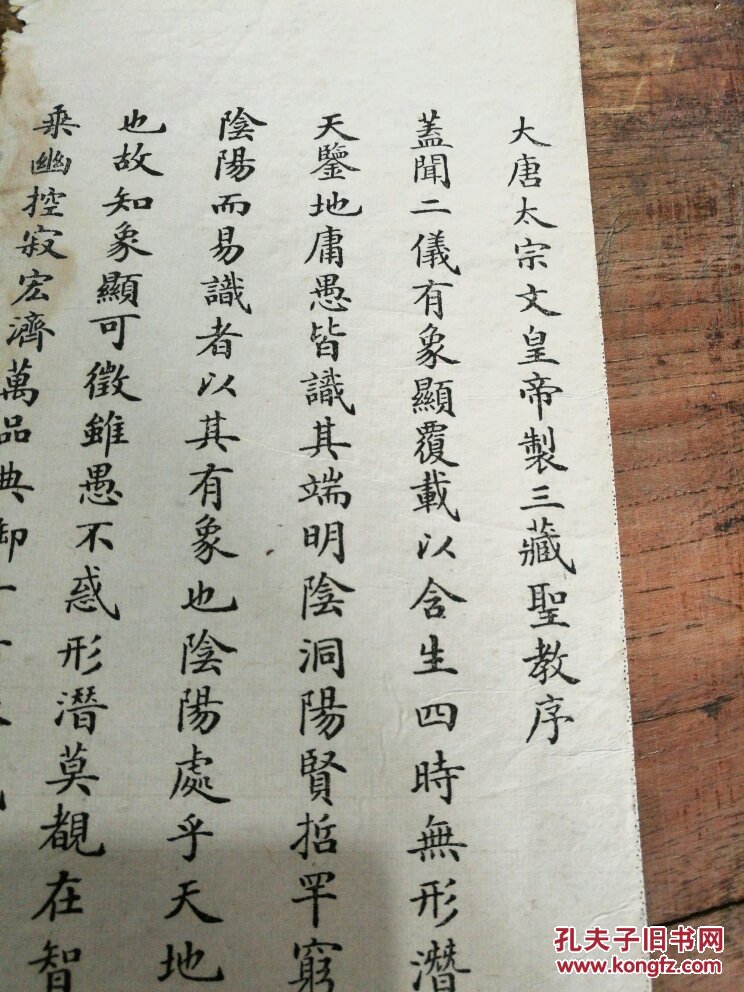 大唐太宗文皇帝製三藏聖教序
蓋聞二儀有象顯覆載以含生四時無形潛
天鑒地庸愚皆識其端明陰洞陽賢哲罕窮
陰陽而易識者以其有象也陰陽處乎天地
也故知象顯可徵雖愚不惑形潛莫覩在智
乘幽控寂宏濟萬品典御
孔夫子旧书网
www.kongfz.com